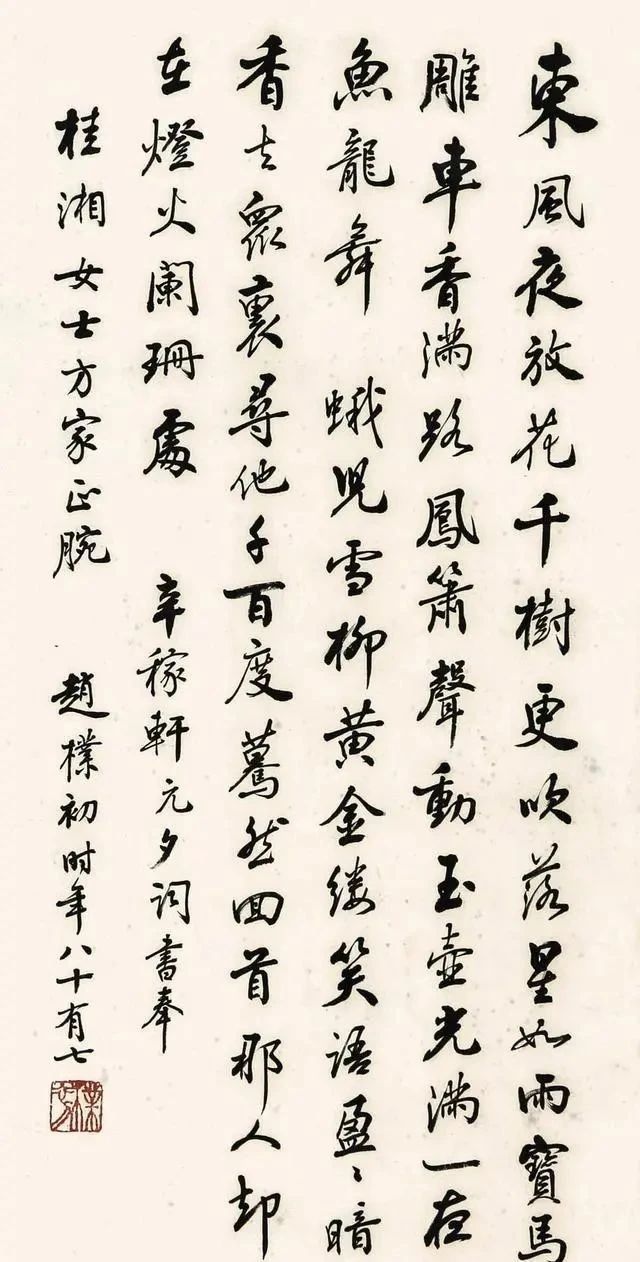 東風夜放花千樹更吹落星如雨寶馬
雕車香滿路鳳簫聲動玉壺光滿一夜
魚龍舞 蛾兒雪柳黄金缕笑語盈〻暗
香去眾裏尋他千百度驀然回首那人却
在燈火闌珊處 辛稼軒元夕词書奉
桂湘女士方家正腕 趙樸初时年八十有七
樸初